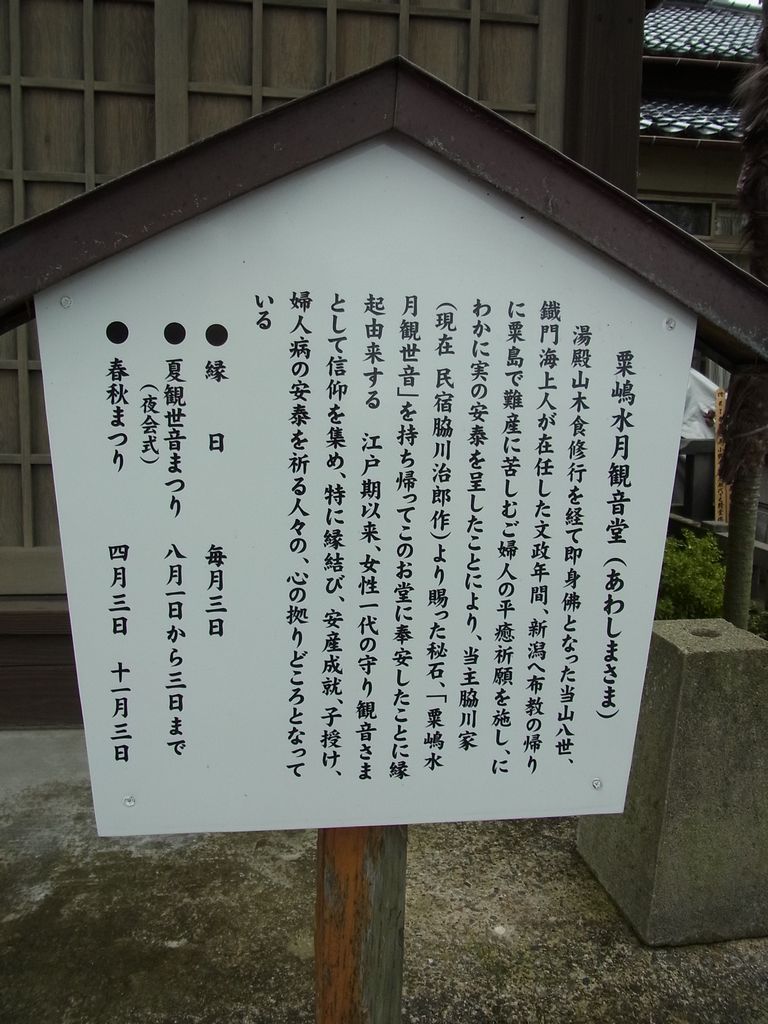 粟嶋水月観音堂(あわしまさま)
湯殿山木食修行を経て即身佛となった当山八世、
鐵門海上人が在任した文政年間、新潟へ布教の帰り
に粟島で難産に苦しむご婦人の平癒祈願を施し、に
わかに実の安泰を呈したことにより、当主脇川家
(現在 民宿脇川治郎作)より賜った秘石、「粟嶋水
月観世音」を持ち帰ってこのお堂に奉安したことに縁
起由来する 江戸期以来、女性一代の守り観音さま
として信仰を集め、特に縁結び、安産成就、子授け、
婦人病の安泰を祈る人々の、心の拠りどころとなって
いる
●縁 日 毎月三日
●夏観世音まつり 八月一日から三日まで
(夜会式)
●春秋まつり 四月三日 十一月三日